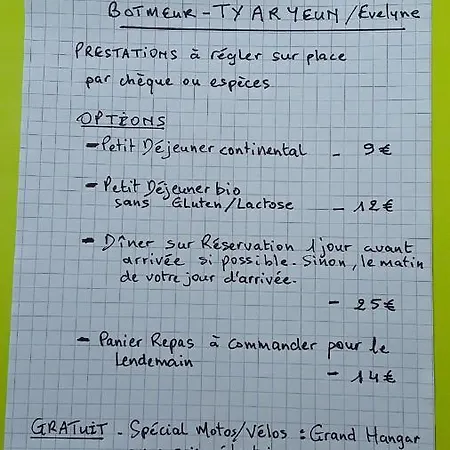 BOTMEUR - TY AR YEUN / Evelyne
PRESTATIONS à régler sur place
par chèque ou espèces
OPTIONS
- Petit Déjeuner continental - 9€
- Petit Déjeuner bio
sans Gluten/Lactose - 12€
- Dîner sur Réservation 1 jour avant
arrivée si possible. Sinon, le matin
de votre jour d'arrivée.
- 25€
- Panier Repas à commander pour le
Lendemain
- 14€
GRATUIT - Spécial Motos/Vélos : Grand Hangar